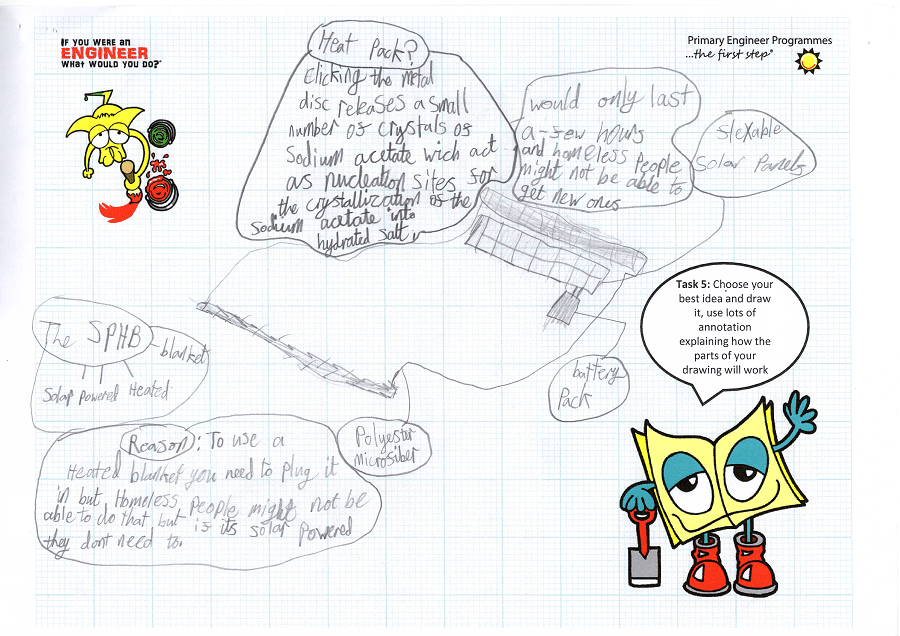 IF YOU WERE an
ENGINEER
WHat WOULD YOU DO?
Primary Engineer Programmes
...the first step
Heat Pack?
Clicking the metal
disc releases a small
number of crystals of
Sodium acetate wich act
as nucleation sites for
the crystallization of the
Sodium acetate into
hydrated salt.
would only last
a-few hours
and homeless people
might not be able to
get new ones
flexable
Solar Panels
Task 5: Choose your
best idea and draw
it, use lots of
annotation
explaining how the
parts of your
drawing will work
The SPHB
blanket
Solar Powered Heated
battery
Pack
Polyester
microfiber
Reason: To use a
Heated blanket you need to plug it
in but Homeless People might not be
able to do that but if its solar Powered
they dont need to.